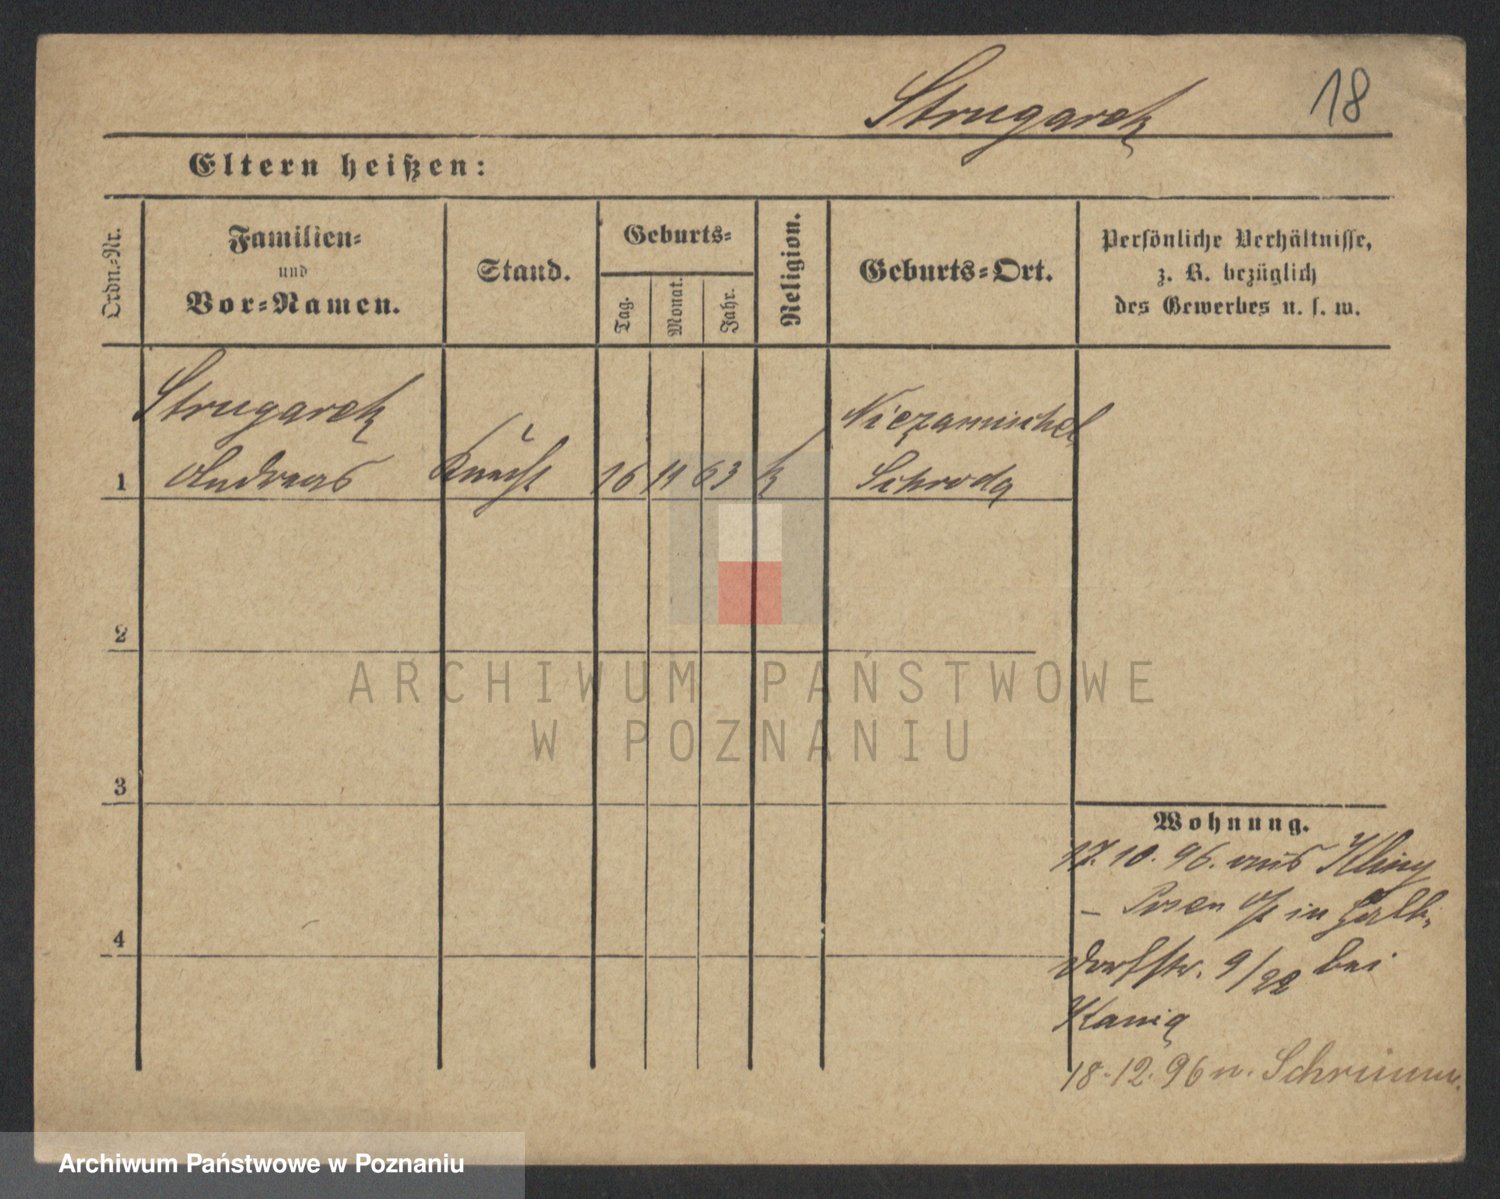 Strugarek
18
Eltern heißen:
Ordn.-Nr.
Familien-
und
Vor-Namen.
Stand.
Geburts-
Tag.
Monat.
Jahr.
Religion.
Geburts-Ort.
Persönliche Verhältnisse,
z. B. bezüglich
des Gewerbes u. s. w.
Strugarek
Niezamischel
1 Andreas Knecht 16 11 63 k Schroda
2
ARCHIWUM PAŃSTWOWE
W POZNANIU
3
Wohnung.
17. 10. 96. aus
– Posen in
dorfstr. 9/22 bei
4
18.12.96 n. Schrimm.
Archiwum Państwowe w Poznaniu